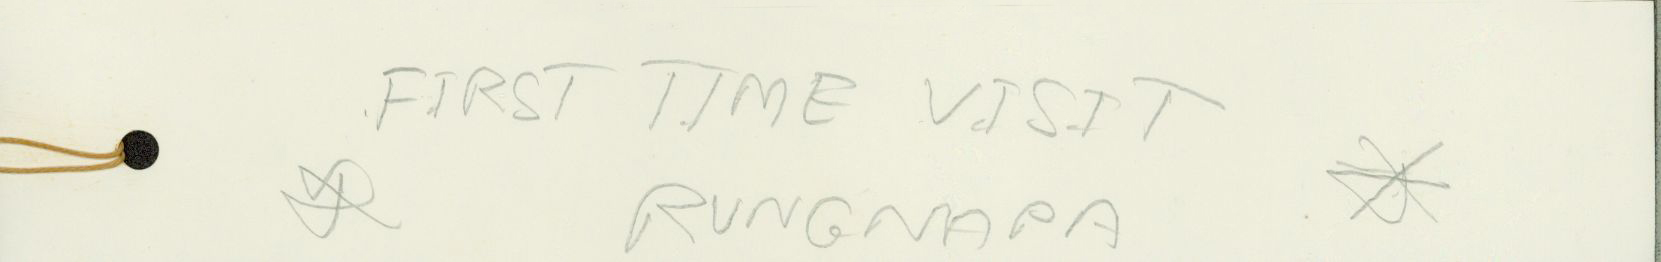 FIRST TIME VISIT
RUNGNAPA